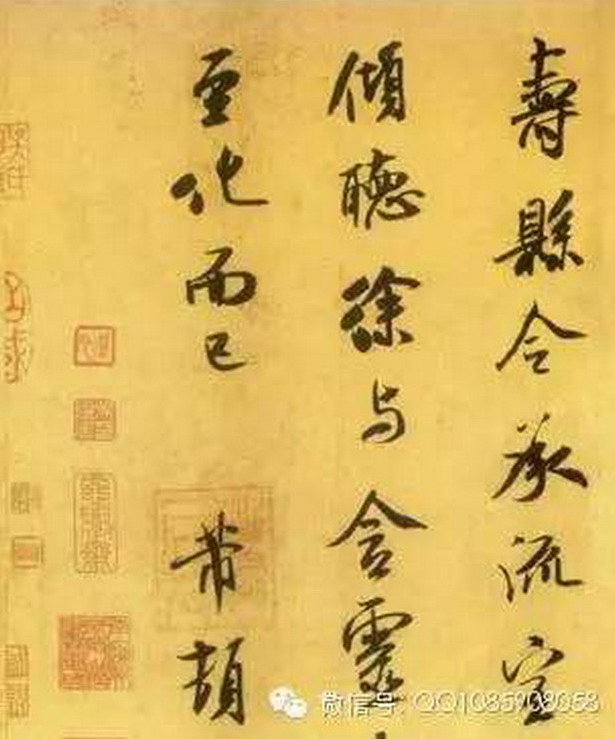 壽縣令承流宣
傾聽徐與含靈
至化而已 芾頓
微信号: QQ1085908058